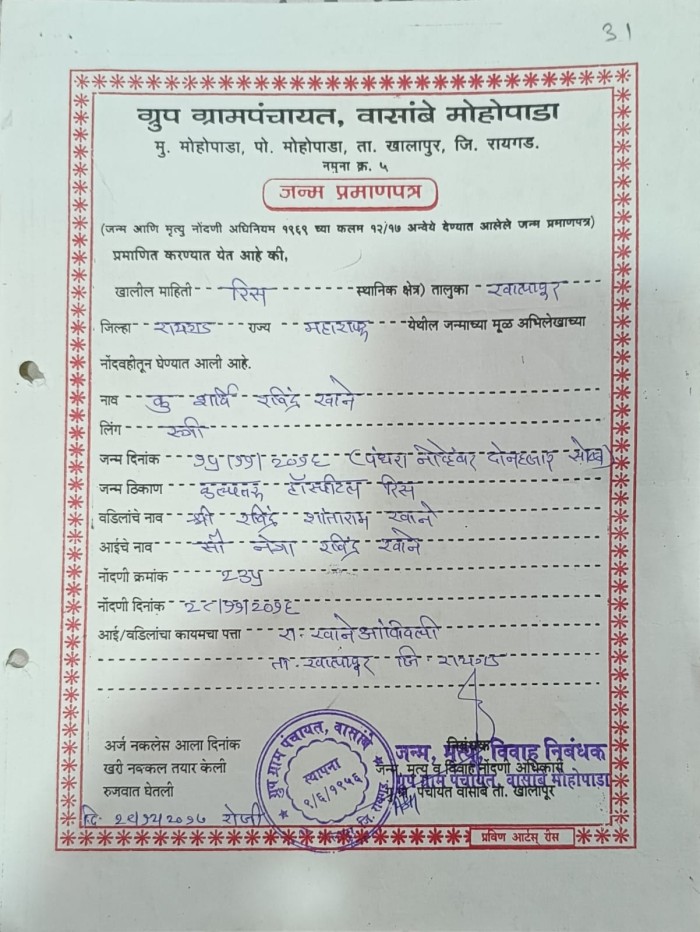 31
ग्रुप ग्रामपंचायत, वासांबे मोहोपाडा
मु. मोहोपाडा, पो. मोहोपाडा, ता. खालापुर, जि. रायगड.
नमुना क्र. ५
जन्म प्रमाणपत्र
(जन्म आणि मृत्यु नोंदणी अधिनियम १९६९ च्या कलम १२/१७ अन्वेये देण्यात आलेले जन्म प्रमाणपत्र)
प्रमाणित करण्यात येत आहे की,
खालील माहिती रिस स्थानिक क्षेत्र) तालुका खालापुर
जिल्हा रायगड राज्य महाराष्ट्र येथील जन्माच्या मूळ अभिलेखाच्या
नोंदवहीतून घेण्यात आली आहे.
नाव कु शार्वि रविंद्र खाने
लिंग स्त्री
जन्म दिनांक १५/११/२०१६ (पंधरा नोव्हेंबर दोनहजार सोळा)
जन्म ठिकाण कल्पतरू हॉस्पीटल रिस
वडिलांचे नाव श्री रविंद्र शांताराम खाने
आईचे नाव सौ नेत्रा रविंद्र खाने
नोंदणी क्रमांक २३५
नोंदणी दिनांक २८/११/२०१६
आई/वडिलांचा कायमचा पत्ता रा. खाने आंबिवली
ता. खालापुर जि. रायगड
अर्ज नकलेस आला दिनांक
खरी नक्कल तयार केली
रुजवात घेतली
दि. रोजी
ग्रुप ग्राम पंचायत, वासांबे
स्थापना
९/६/१९५६
जि. रायगड
निबंधक
जन्म, मृत्यु, विवाह निबंधक
जन्म, मृत्यु व विवाह नोंदणी अधिकारी
ग्रुप ग्राम पंचायत, वासांबे मोहोपाडा
ग्रु. ग्रा. पंचायत वासांबे ता. खालापूर
प्रविण आर्टस् रीस